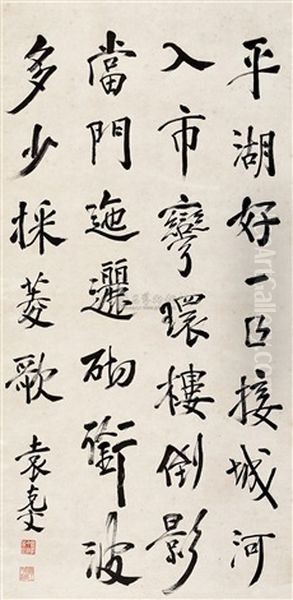 平湖好一接城河
入市彎環樓倒影
當門迤邐砌銜波
多少採菱歌
袁克文